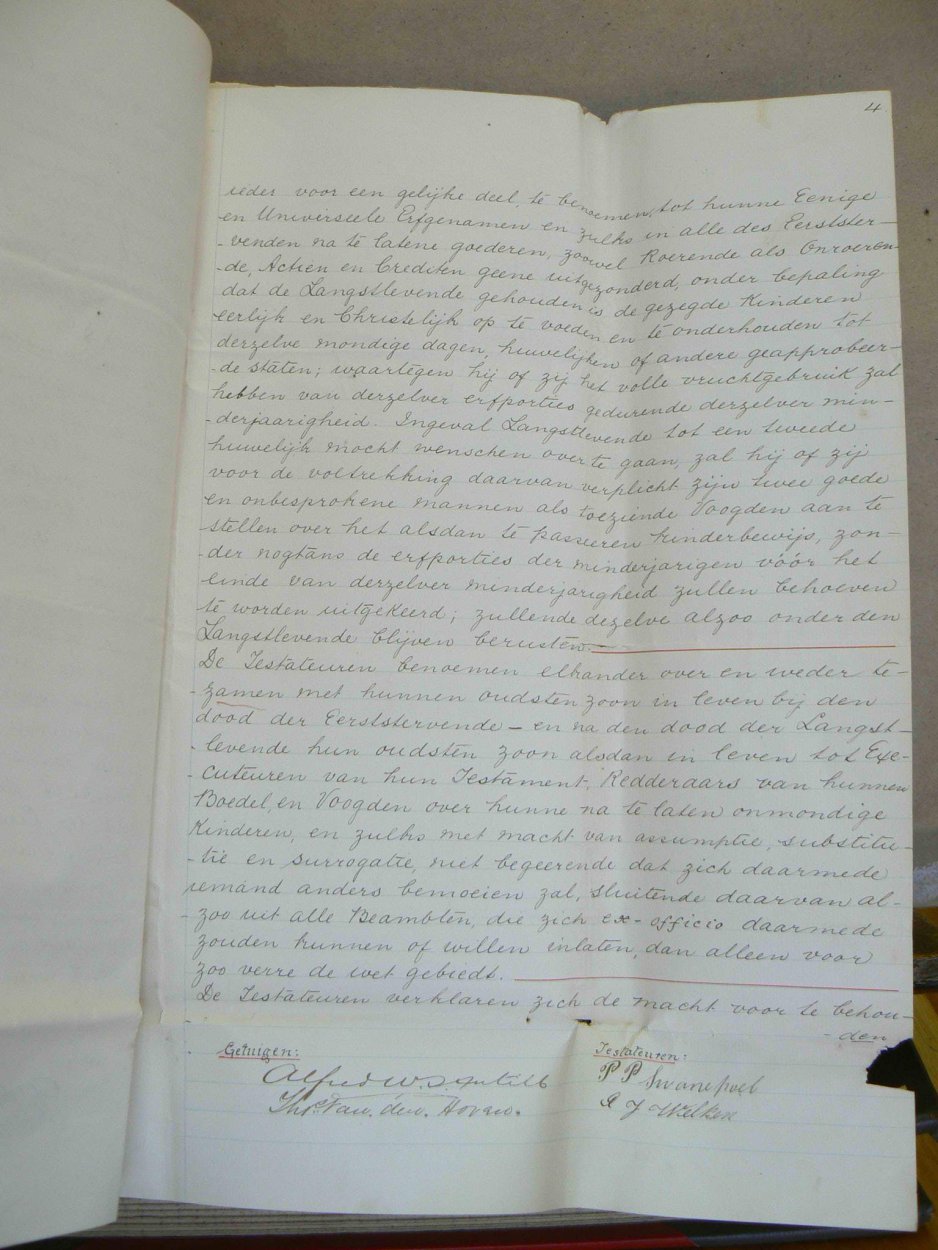 4
ieder voor een gelijke deel, te benoemen, tot hunne Eenige
en Universeele Erfgenamen, en zulks in alle des Eerstster-
-venden na te latene goederen, zoowel Roerende als Onroeren-
-de, Actien en Crediten geene uitgezonderd, onder bepaling
dat de Langstlevende gehouden is de gezegde Kinderen
eerlijk en Christelijk op te voeden en te onderhouden tot
derzelve mondige dagen, huwelijken of andere geapprobeer-
-de staten; waartegen hij of zij het volle vruchtgebruik zal
hebben van derzelver erfporties gedurende derzelver min-
-derjaarigheid. Ingeval Langstlevende tot een tweede
huwelijk mocht wenschen over te gaan, zal hij of zij
voor de voltrekking daarvan verplicht zijn twee goede
en onbesprokene mannen als toeziende Voogden aan te
-stellen over het alsdan te passeeren kinderbewijs, zon-
-der nogtans de erfporties der minderjarigen vóór het
einde van derzelver minderjarigheid zullen behoeven
te worden uitgekeerd; zullende dezelve alzoo onder den
Langstlevende blijven berusten.
De Testateuren benoemen elkander over en weder te-
-zamen met hunnen oudsten zoon in leven bij den
dood der Eerststervende – en na den dood der Langst-
-levende hun oudsten zoon alsdan in leven tot Exe-
-cuteuren van hun Testament, Redderaars van hunnen
Boedel, en Voogden over hunne na te laten onmondige
Kinderen, en zulks met macht van assumptie, substitu-
-tie en surrogatie, niet begeerende dat zich daarmede
iemand anders bemoeien zal, sluitende daarvan al-
-zoo uit alle Beambten, die zich ex-officio daarmede
zouden kunnen of willen inlaten, dan alleen voor
zoo verre de wet gebiedt.
De Testateuren verklaren zich de macht voor te behou-
-den
Getuigen: Testateuren:
Alfred W. P P Swanepoel
van den Hoven. J Wilken